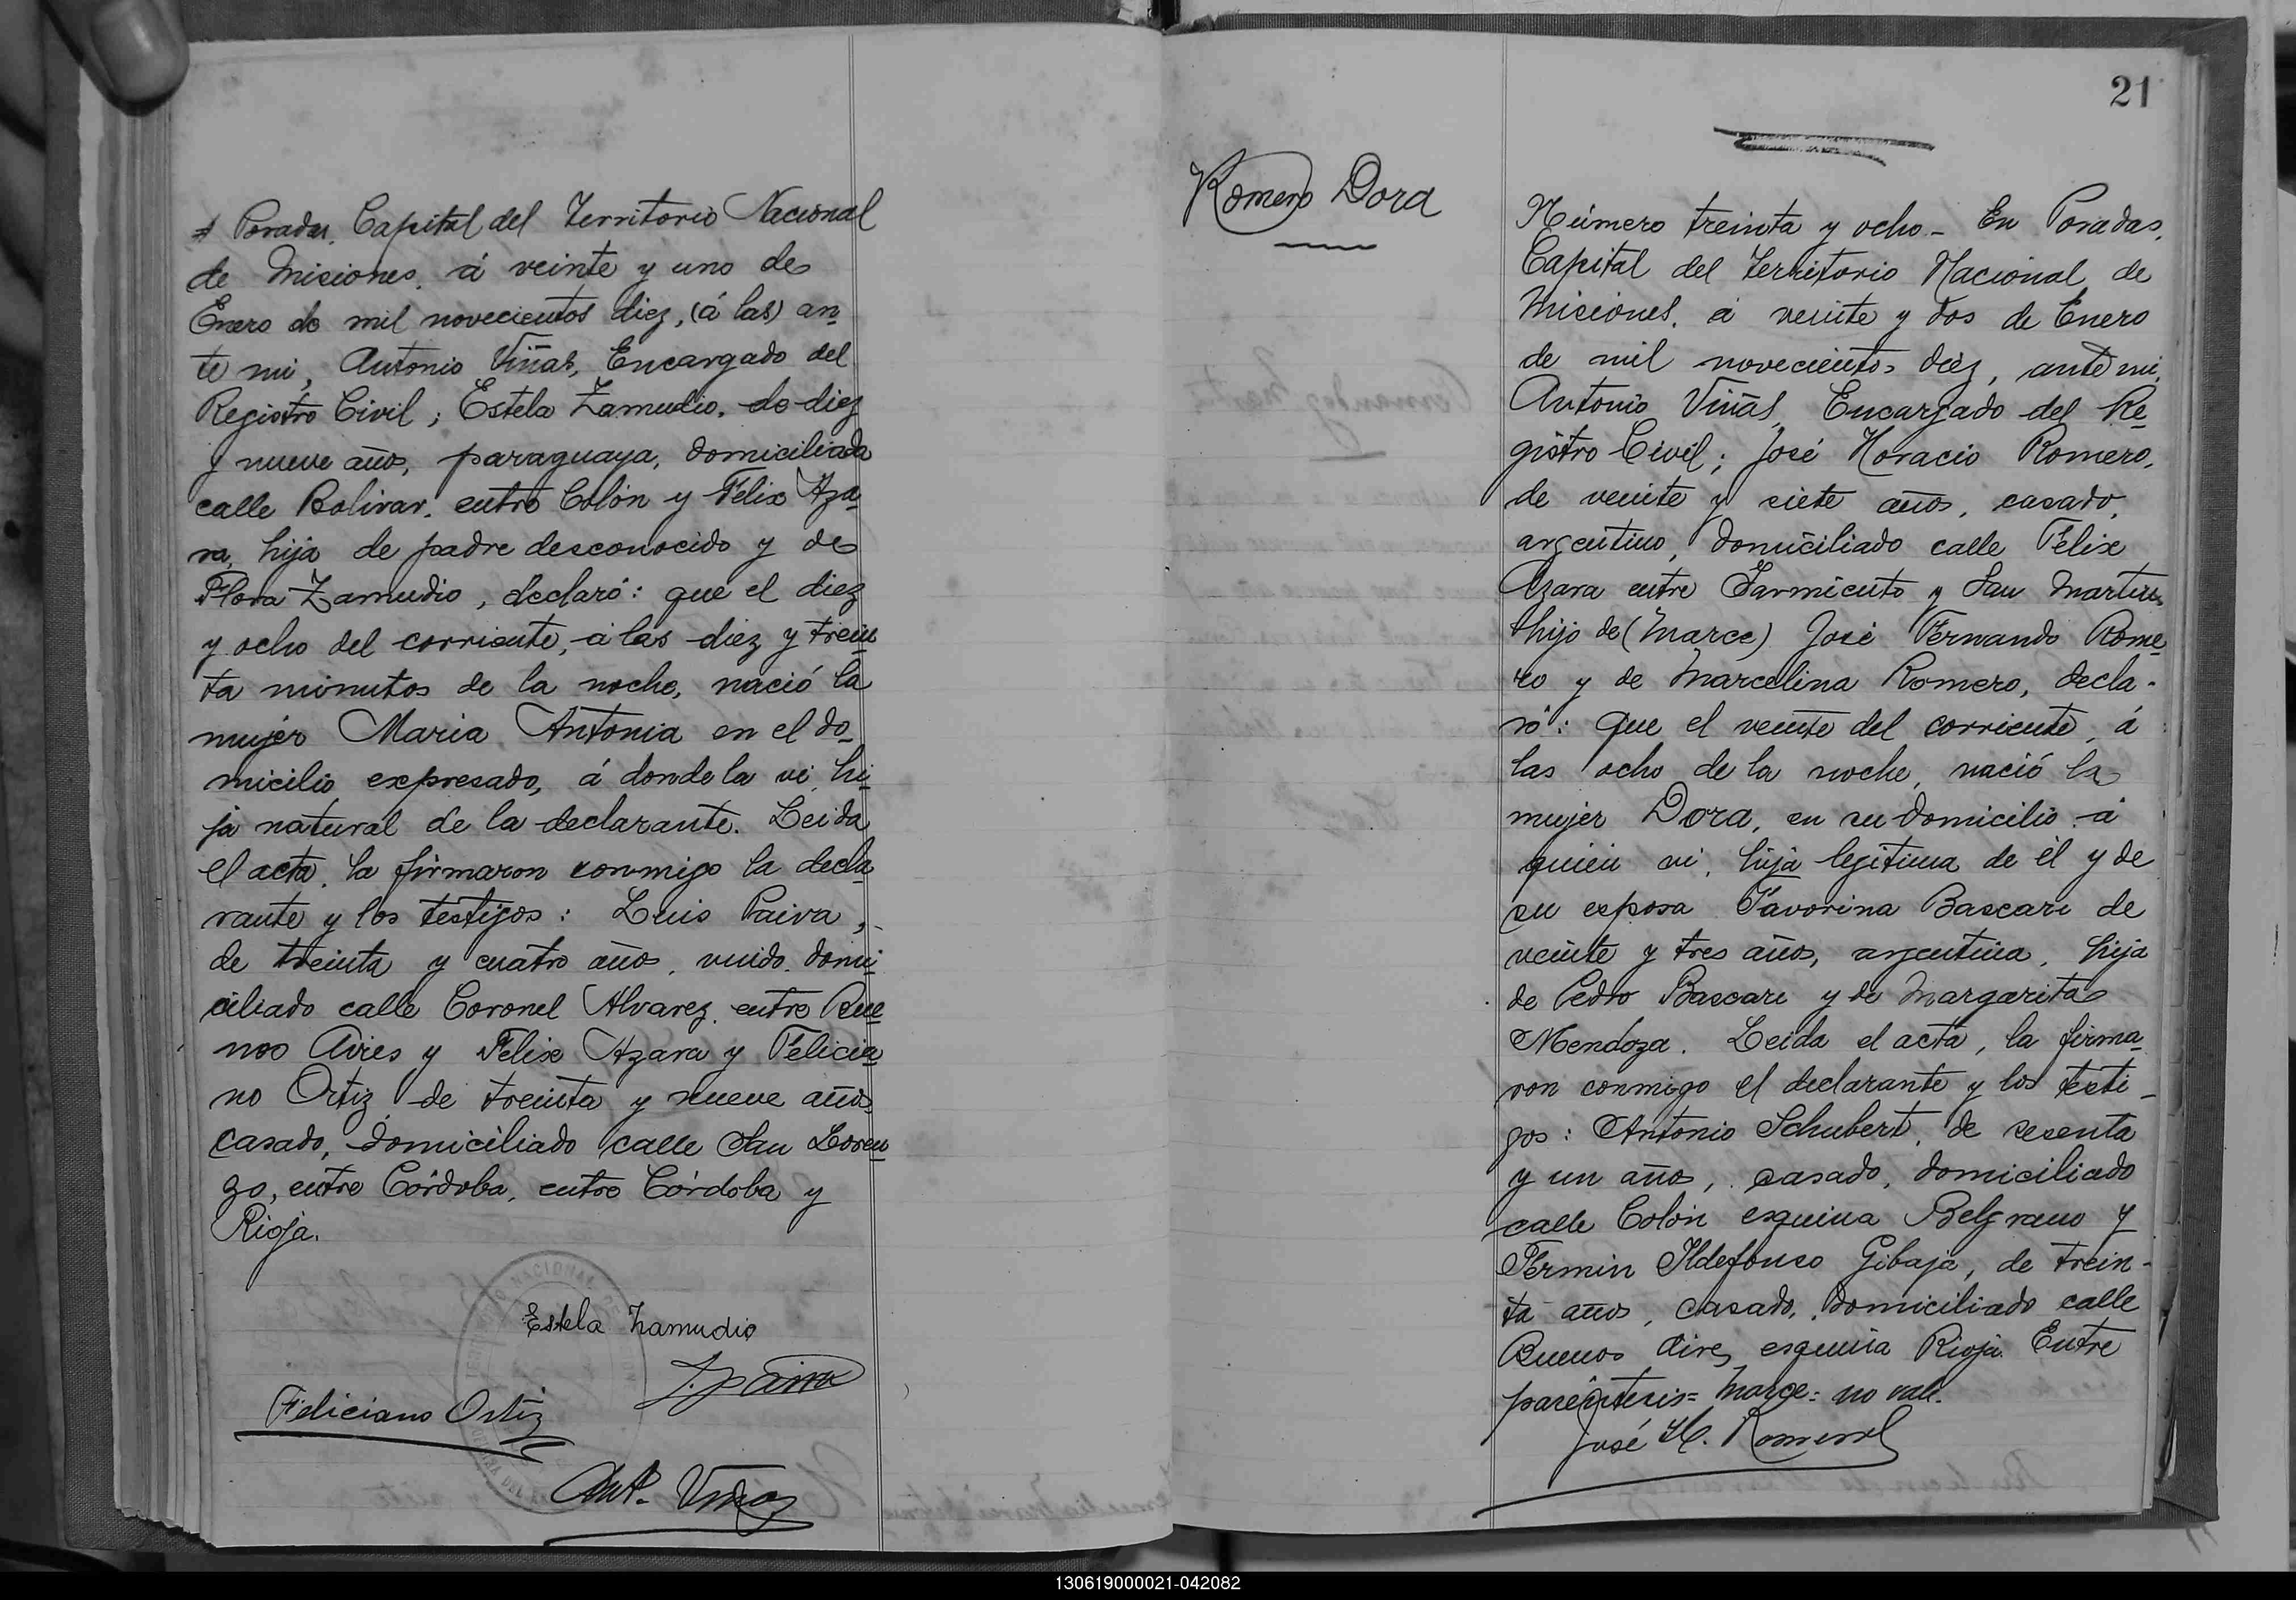 Posadas, Capital del Territorio Nacional
de Misiones, á veinte y uno de
Enero de mil novecientos diez, (á las) an
te mi, Antonio Viñas, Encargado del
Registro Civil; Estela Zamudio, de diez
y nueve años, paraguaya, domiciliada
calle Bolivar, entre Colón y Felix Aza
ra, hija de padre desconocido y de
Flora Zamudio, declaró: que el diez
y ocho del corriente, á las diez y trein
ta minutos de la noche, nació la
mujer Maria Antonia en el do
micilio expresado, á donde la vi, hi
ja natural de la declarante. Leida
el acta, la firmaron conmigo la decla
rante y los testigos: Luis Paiva,
de treinta y cuatro años, viudo, domi
ciliado calle Coronel Alvarez, entre Bue
nos Aires y Felix Azara y Felicia
no Ortiz de treinta y nueve años
casado, domiciliado calle San Loren
zo, entre Córdoba, entre Córdoba y
Rioja.
TERRITORIO NACIONAL DE
Estela Zamudio
L. Paiva
Feliciano Ortiz
Ant. Viñas
21
Romero Dora
Número treinta y ocho - En Posadas,
Capital del Territorio Nacional de
Misiones, á veinte y dos de Enero
de mil novecientos diez, ante mi,
Antonio Viñas, Encargado del Re
gistro Civil; José Horacio Romero,
de veinte y siete años, casado,
argentino, domiciliado calle Felix
Azara entre Sarmiento y San Martin
hijo de (Marce) José Fernando Rome
ro y de Marcelina Romero, decla-
ró: que el veinte del corriente, á
las ocho de la noche, nació la
mujer Dora, en su domicilio á
quien vi, hija legitima de él y de
su esposa Favorina Bascari de
veinte y tres años, argentina, hija
de Pedro Bascari y de Margarita
Mendoza. Leida el acta, la firma
ron conmigo el declarante y los testi-
gos: Antonio Schubert, de sesenta
y un años, casado, domiciliado
calle Colón esquina Belgrano y
Fermin Ildefonso Gibaja, de trein-
ta años, casado, domiciliado calle
Buenos Aires esquina Rioja. Entre
paréntesis = Marce = no vale.
José H. Romero
130619000021-042082